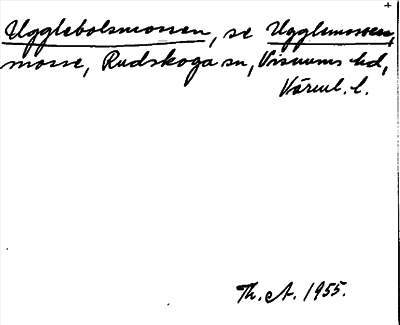 Ugglebolsmossen, se Ugglemossen,
mosse, Rudskoga sn, Visnums hd,
Värml. l.
Th. A. 1955.